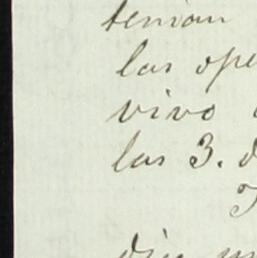 tenian
las ope
vivo
las 3. d
dia m